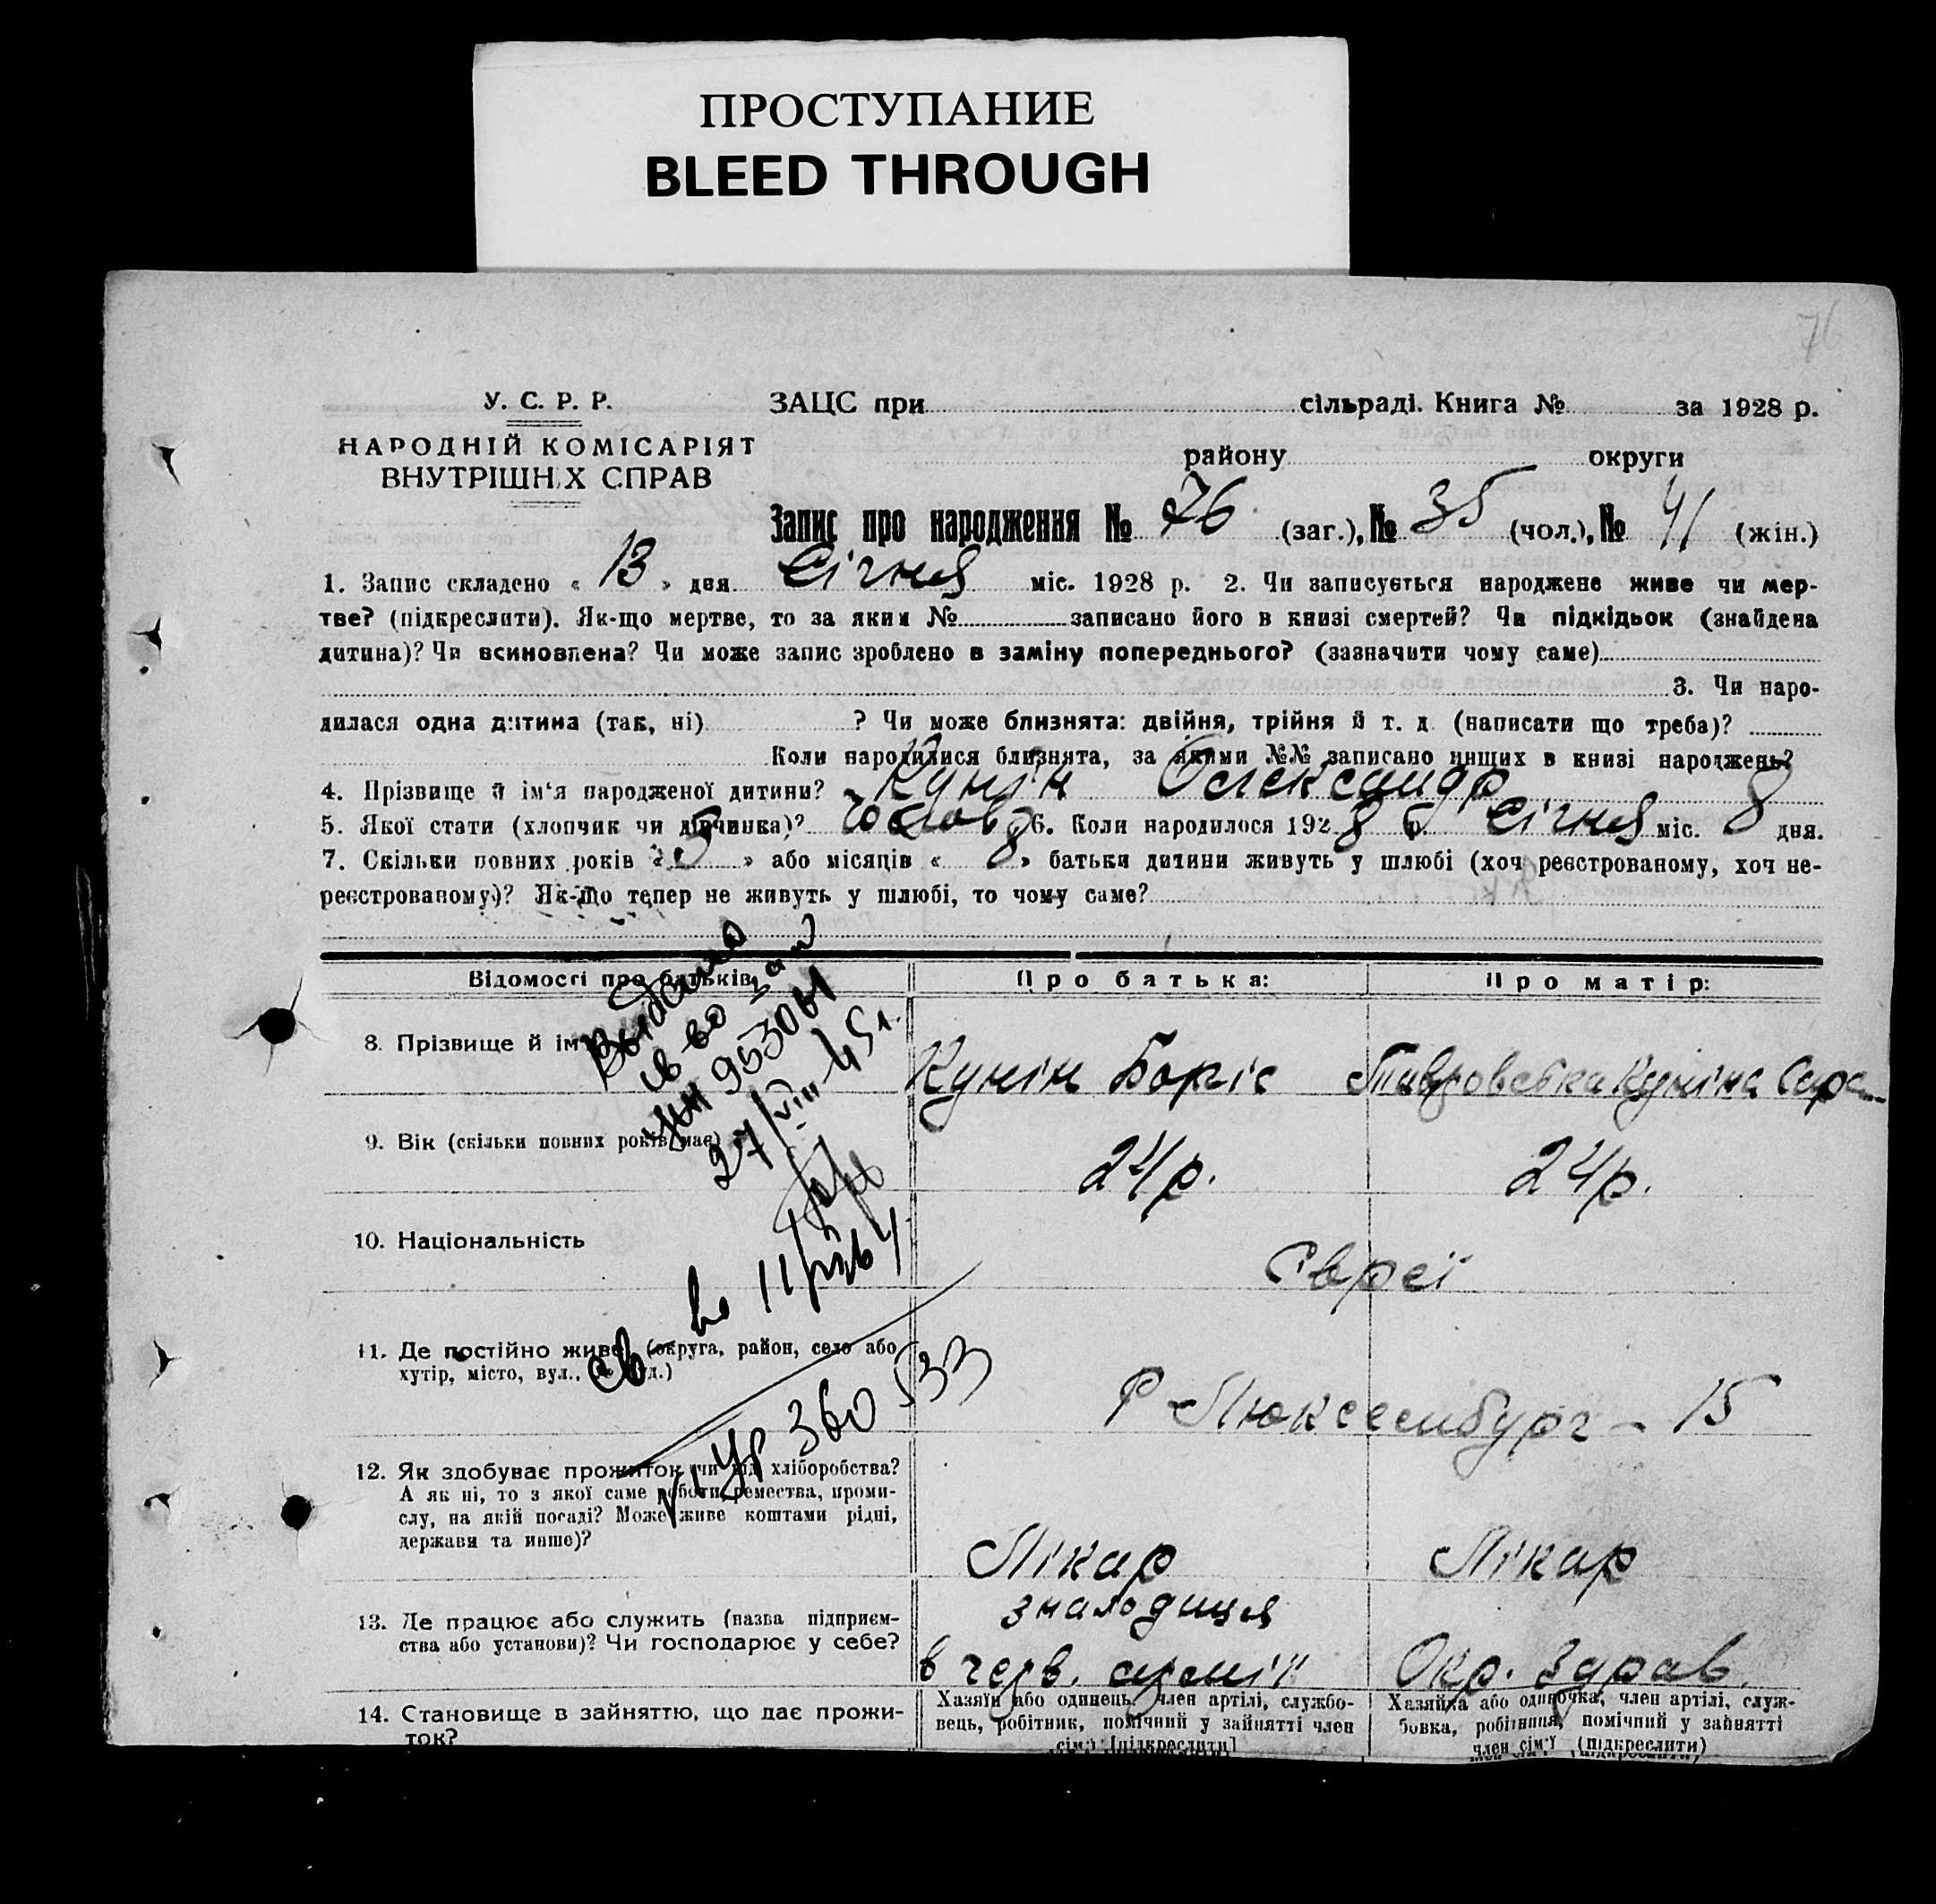 ПРОСТУПАНИЕ
BLEED THROUGH
76
У. С. Р. Р.
НАРОДНІЙ КОМІСАРІЯТ
ВНУТРІШНІХ СПРАВ
ЗАЦС при сільраді. Книга № за 1928 р.
району округи
Запис про народження № 76 (заг.), № 35 (чол.), № 41 (жін.)
1. Запис складено « 13 » дня Січня міс. 1928 р. 2. Чи записується народжене живе чи мер-
тве? (підкреслити). Як-що мертве, то за яким № записано його в книзі смертей? Чи підкідьок (знайдена
дитина)? Чи всиновлена? Чи може запис зроблено в заміну попереднього? (зазначити чому саме)
3. Чи наро-
дилася одна дитина (так, ні) ? Чи може близнята: двійня, трійня й т. д. (написати що треба)?
Коли народилися близнята, за якими №№ записано инших в книзі народжень?
4. Прізвище й ім'я народженої дитини? Кунін Олександр
5. Якої стати (хлопчик чи дівчинка)? 6. Коли народилося 192 8 р Січня міс. 8 дня.
7. Скільки повних років « 5 » або місяців « 8 » батьки дитини живуть у шлюбі (хоч реєстрованому, хоч не-
реєстрованому)? Як-що тепер не живуть у шлюбі, то чому саме?
Відомості про батьків Про батька: Про матір:
8. Прізвище й ім Кунін Боріс Куніна Сара
Выдано
св-во
953061
27/VIII 45 г.
9. Вік (скільки повних років має) 24 р. 24 р.
10. Національність Євреї
11. Де постійно живе (округа, район, село або
хутір, місто, вул., д.) Р-Люксембург - 15
св во
УР 360 533
12. Як здобуває прожиток чи від хліборобства?
А як ні, то з якої саме роботи, ремества, проми-
слу, на якій посаді? Може живе коштами рідні,
держави та инше)?
Лікар Лікар
13. Де працює або служить (назва підприєм-
ства або установи)? Чи господарює у себе?
знаходиця
в черв. армії Окр. Здрав.
14. Становище в зайняттю, що дає прожи-
ток?
Хазяїн або одинець, член артілі, службо-
вець, робітник, помічний у зайнятті член
сім'ї [підкреслити]
Хазяйка або одиночка, член артілі, служ-
бовка, робітниця, помічний у зайнятті
член сім'ї (підкреслити)